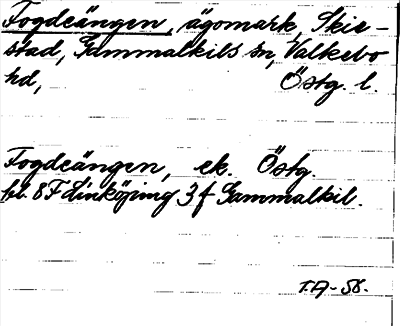 Fogdeängen, ägomark, Skie-
stad, Gammalkils sn, Valkebo
hd, Östg. l.
Fogdeängen, ek. Östg.
bl. 8F Linköping 3f Gammalkil.
T.A-58.